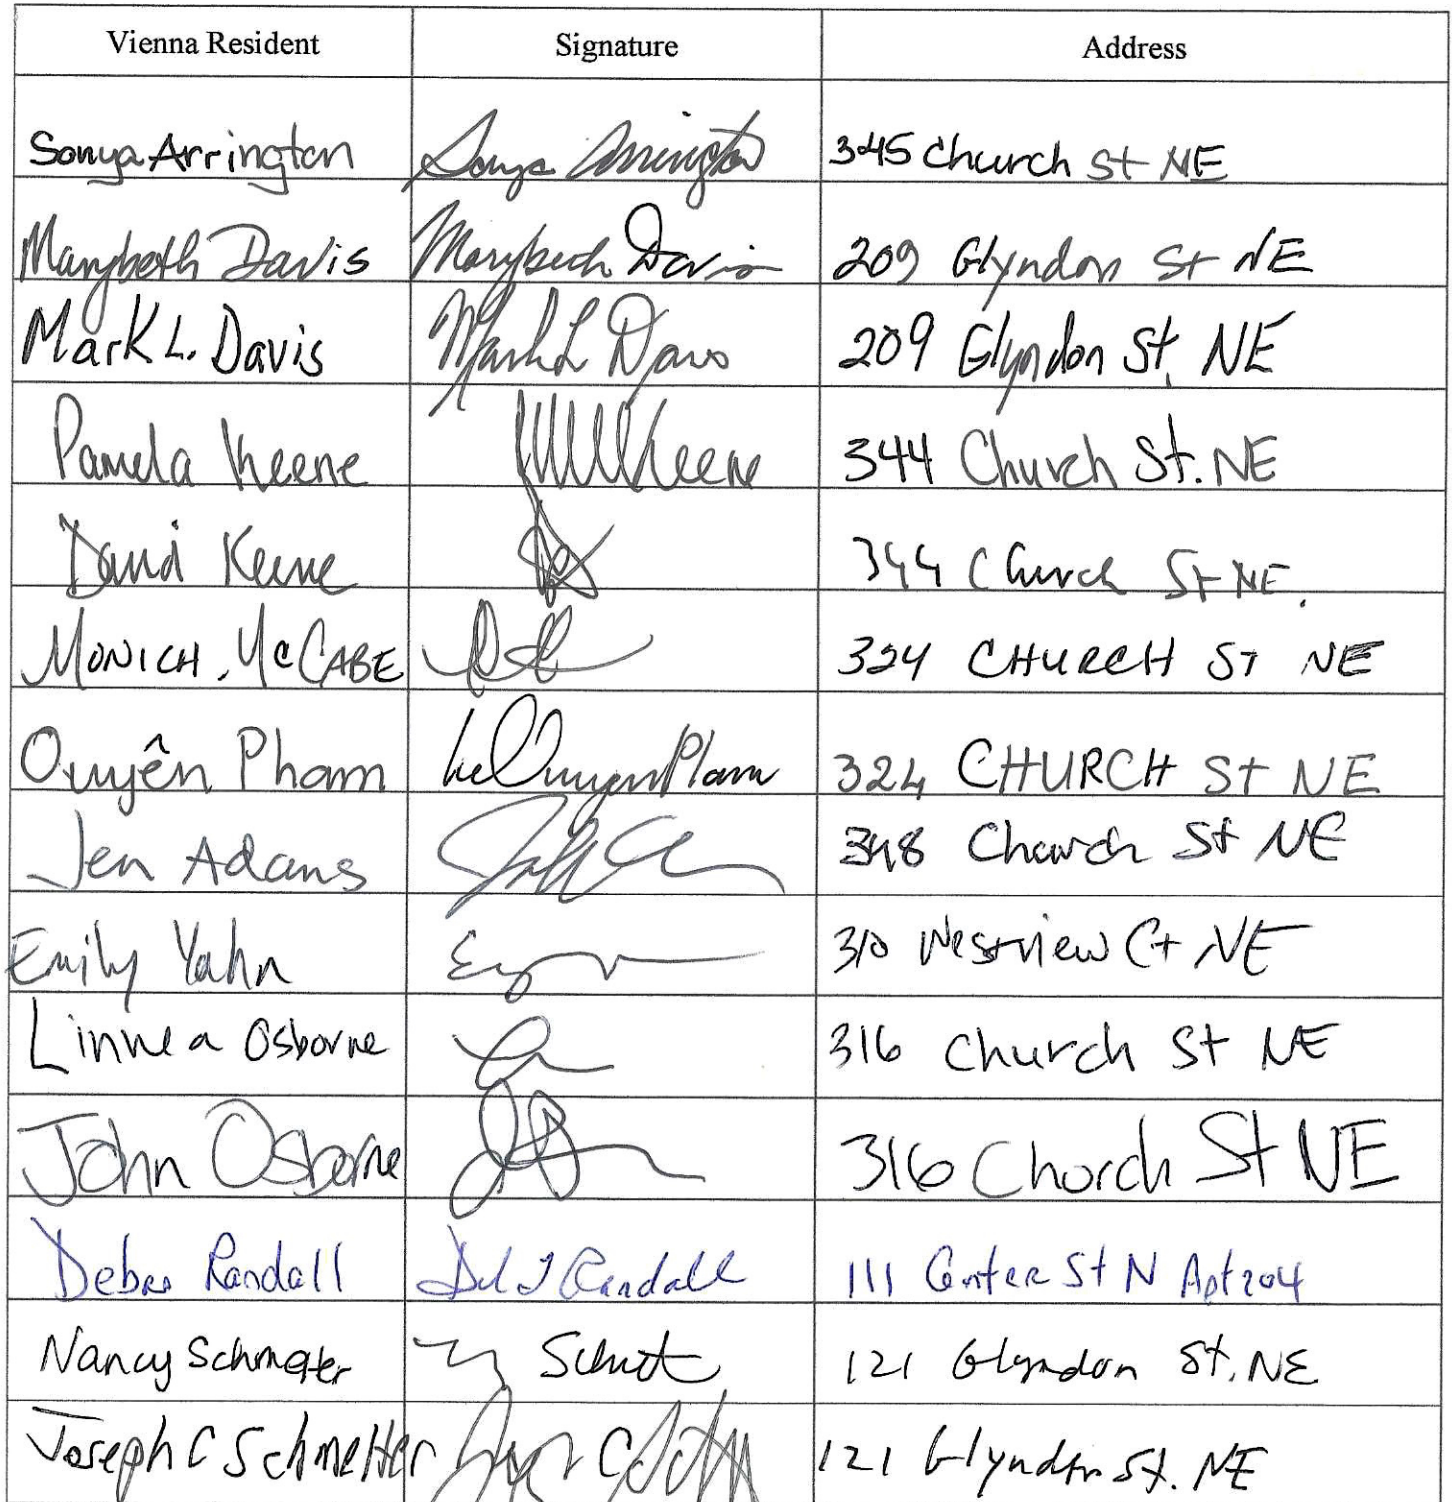 Vienna Resident Signature Address
Sonya Arrington Sonya Arrington 345 Church St NE
Marybeth Davis Marybeth Davis 209 Glyndon St NE
Mark L. Davis Mark L Davis 209 Glyndon St. NE
Pamela Keene Keene 344 Church St. NE
David Keene 344 Church St NE.
MONICH. McCABE 324 CHURCH ST NE
Quyên Pham Pham 324 CHURCH St NE
Jen Adams 348 Church St NE
Emily Yahn 310 Westview Ct NE
Linnea Osborne 316 Church St NE
John Osborne 316 Church St NE
Debra Randall Randall 111 Center St N Apt 204
Nancy Schmelter 121 Glyndon St. NE
Joseph C Schmelter 121 Glyndon St. NE